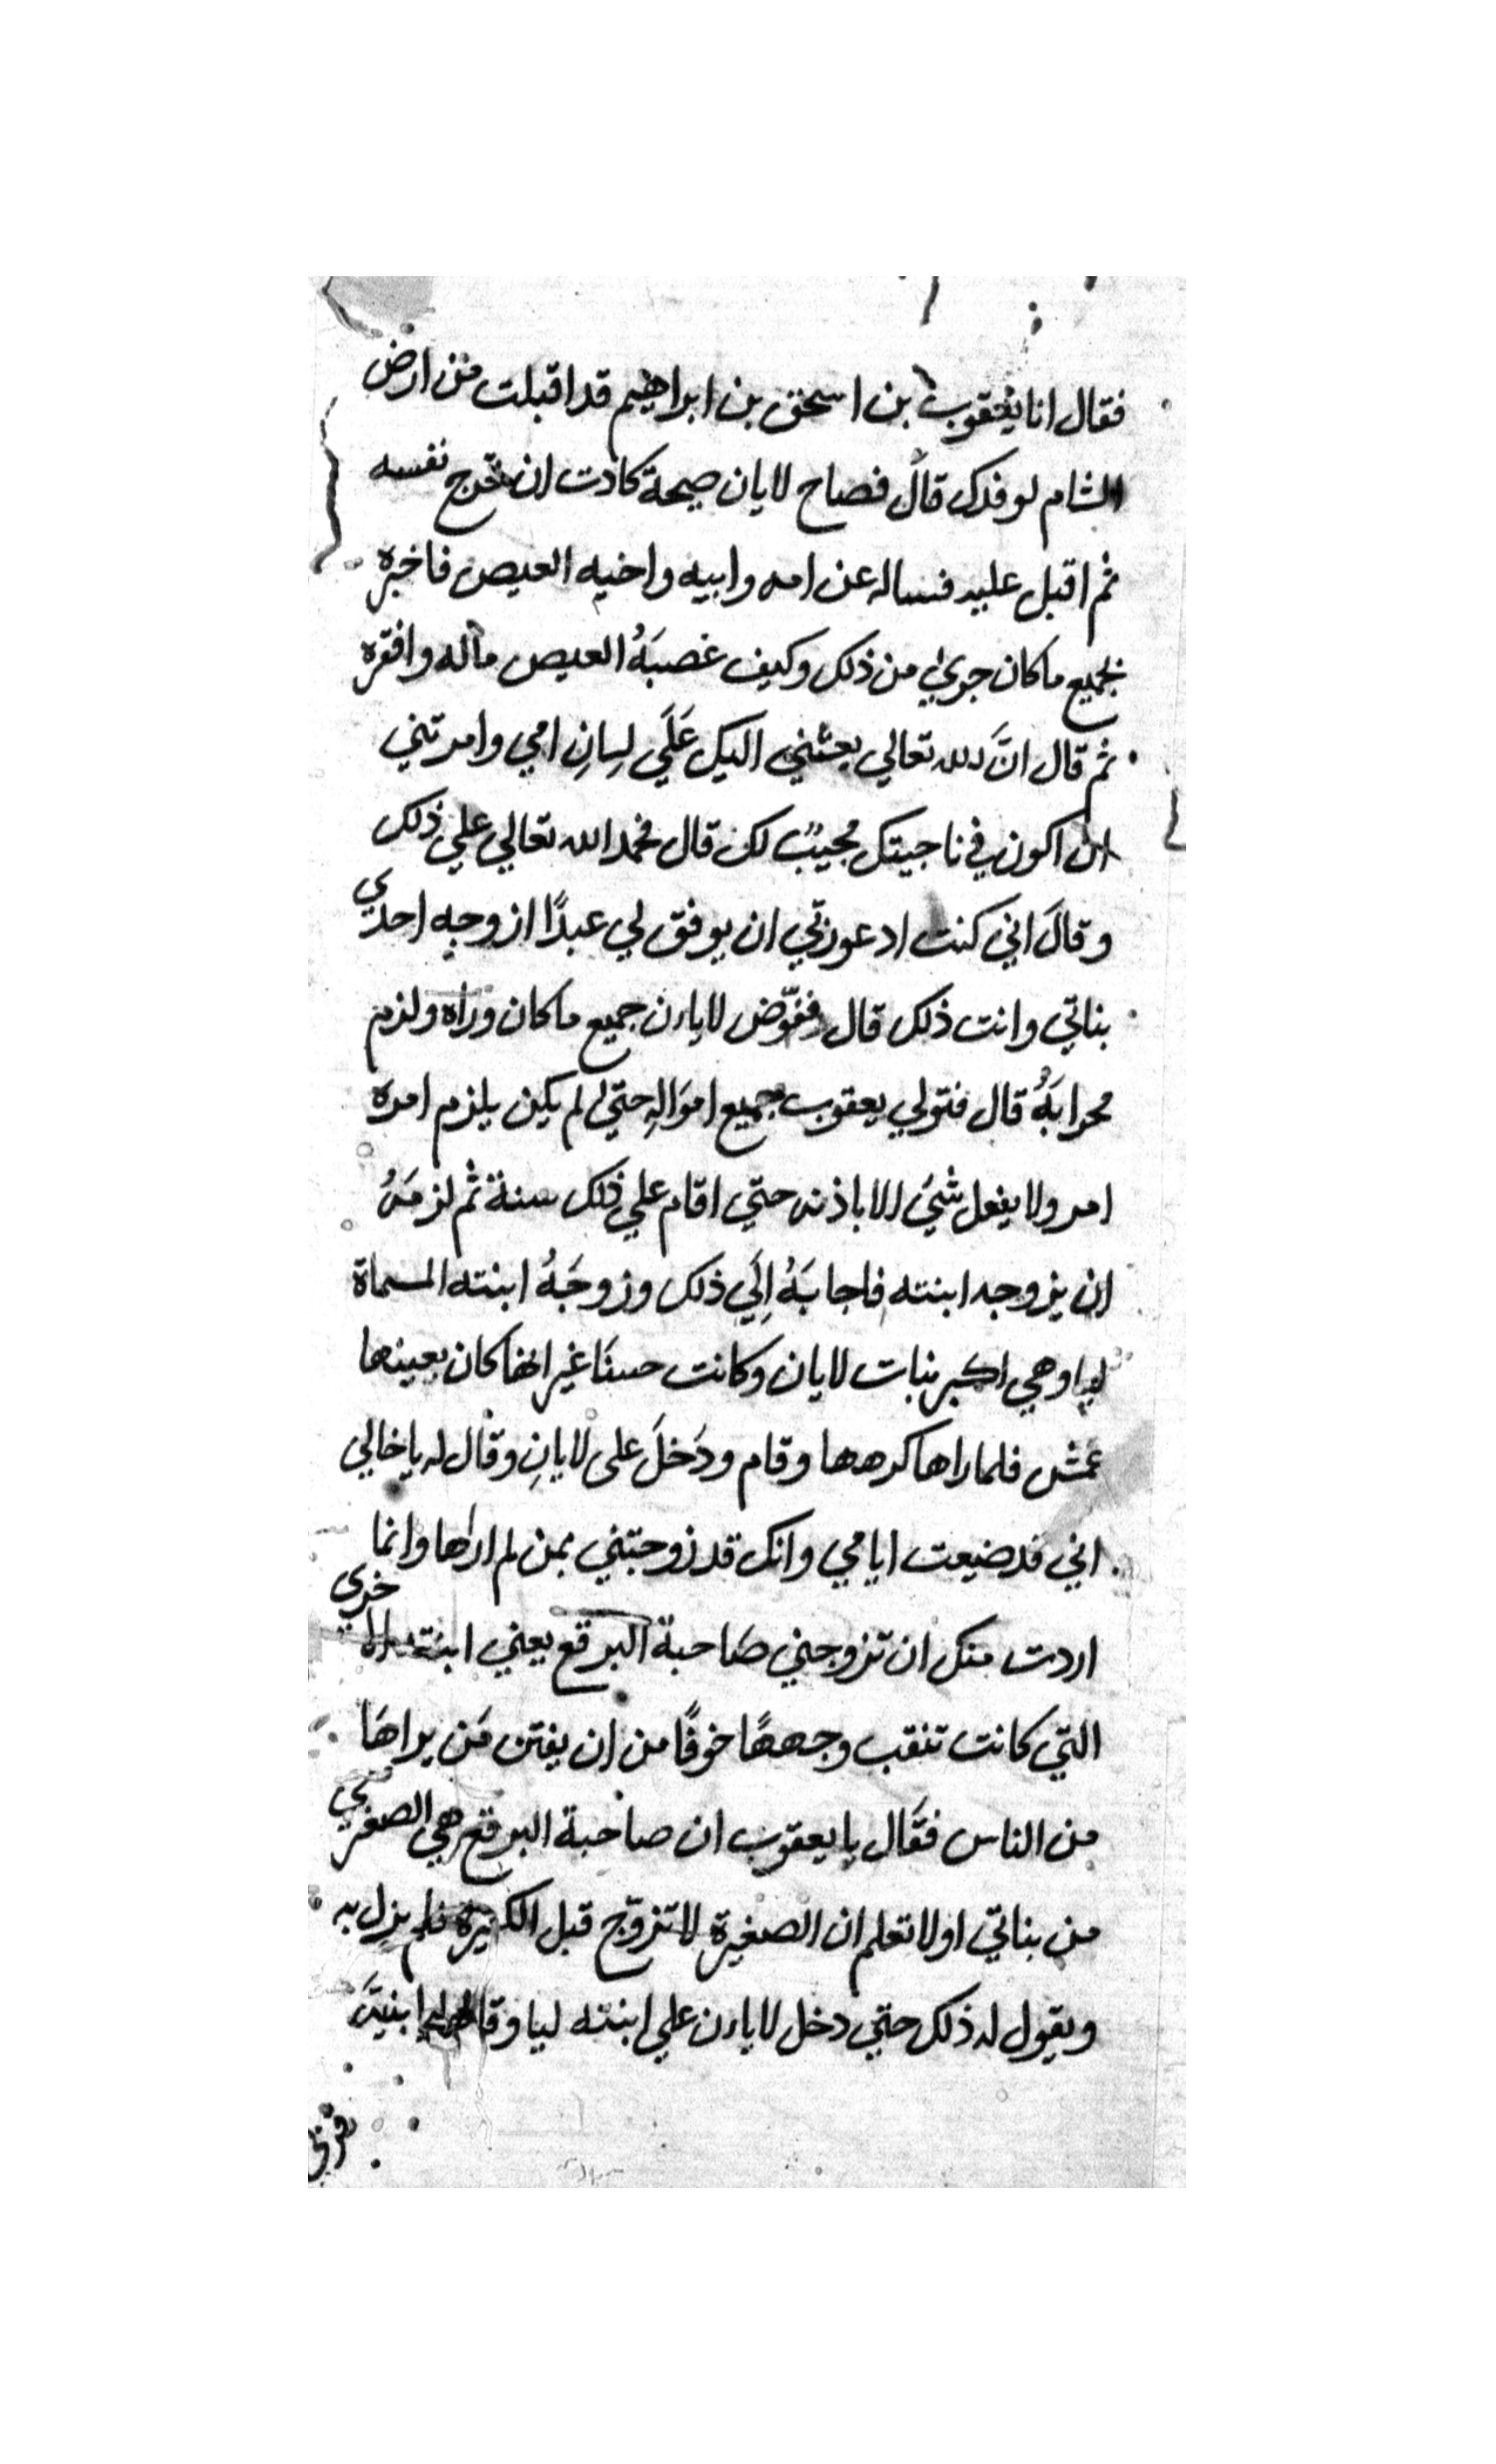 فقال انا يعقوب بن اسحق بن ابراهيم قد اقبلت من ارض
الشام لوفدك قال فصاح لايان صيحة كادت ان تخرج نفسه
ثم اقبل عليه فساله عن امه وابيه واخيه العيص فاخبره
بجميع ما كان جري من ذلك وكيف غصبَهُ العيص ماله وافقره
ثم قال انَّ الله تعالي بعثني اليك عَلَي لِسانِ امي وامرتني
ان اكون في ناحيتك مجيبٌ لك قال فحمد الله تعالي علي ذلك
وقالَ اني كنت ادعو ربي ان يوفق لي عبدًا ازوجه احدي
بناتي وانت ذلك قال ففوّض لايان جميع ما كان وراه ولزم
محرابَهُ قال فتولي يعقوب جميع اموَالِهِ حتي لم يكن يلزم امره
امر ولا يفعل شيء الا باذنه حتي اقام علي ذلك سنة ثم لزمَهُ
ان يزوجه ابنته فاجابَهُ اِلَي ذلك وزوجَهُ ابنته المسماة
ليا وهي اكبر بنات لايان وكانت حسنَا غير انها كان بعينها
عمش فلما راها كرهها وقام ودَخلَ على لايانِ وقال له يا خالي
اني قد ضيعت ايامي وانك قد زوجتني بمن لم ارها وانما
اردت منك ان تزوجني صاحبة البرقع يعني ابنته الاخري
التي كانت تنقب وجهها خوفًا من ان يفتن مَن يراهَا
من الناس فقال يا يعقوب ان صاحبة البرقع هي الصغري
من بناتي اولا تعلم ان الصغيرة لا تزوّج قبل الكبيرة فلم يزل به
ويقول له ذلك حتي دخل لايان علي ابنته ليا وقال لها ابنيَّة